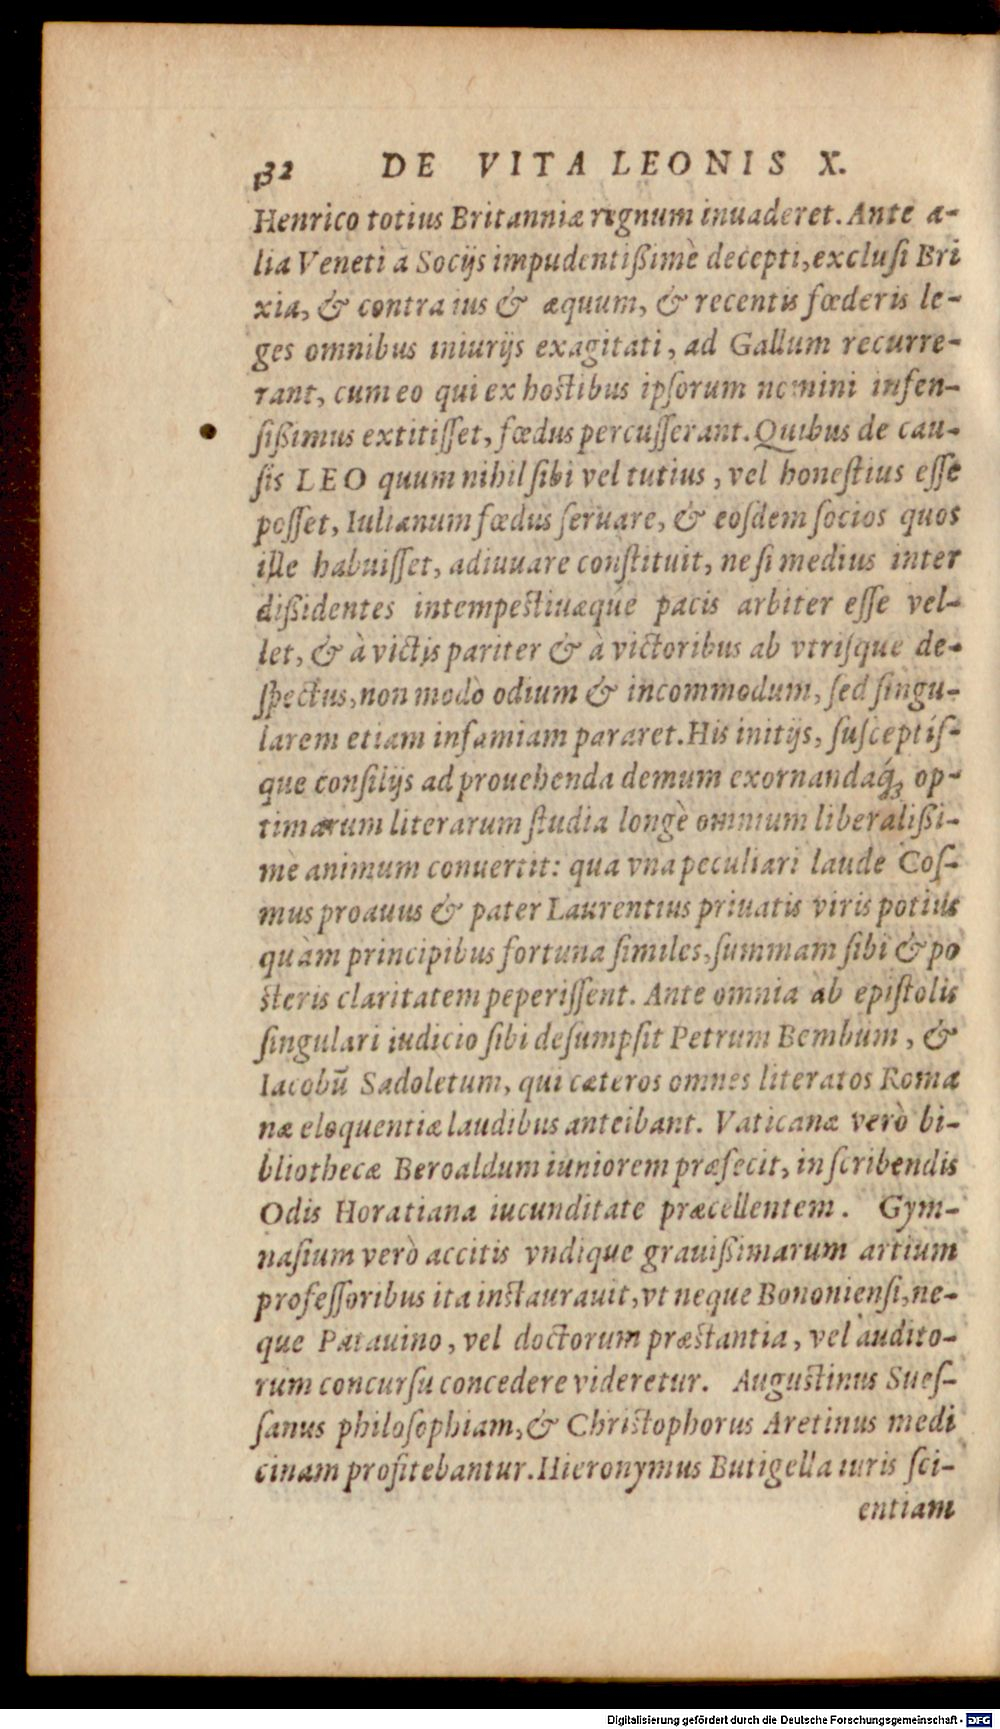 132 DE VITA LEONIS X.
Henrico totius Britanniæ regnum inuaderet. Ante a-
lia Veneti à Socijs impudentißimè decepti, exclusi Bri
xia, & contra ius & æquum, & recentis fœderis le-
ges omnibus iniurijs exagitati, ad Gallum recurre-
rant, cum eo qui ex hostibus ipsorum nomini infen-
sißimus extitisset, fœdus percusserant. Quibus de cau-
sis LEO quum nihil sibi vel tutius, vel honestius esse
posset, Iulianum fœdus seruare, & eosdem socios quos
ille habuisset, adiuuare constituit, ne si medius inter
dißidentes intempestiuæq́ue pacis arbiter esse vel-
let, & à victis pariter & à victoribus ab vtrisque de-
spectus, non modò odium & incommodum, sed singu-
larem etiam infamiam pararet. His initijs, susceptís-
que consilijs ad prouehenda demum exornandaq́; op-
timarum literarum studia longè omnium liberalißi-
mè animum conuertit: qua vna peculiari laude Cos-
mus proauus & pater Laurentius priuatis viris potius
quàm principibus fortuna similes, summam sibi & po
steris claritatem peperissent. Ante omnia ab epistolis
singulari iudicio sibi desumpsit Petrum Bembum, &
Iacobũ Sadoletum, qui cæteros omnes literatos Roma
næ eloquentiæ laudibus anteibant. Vaticanæ verò bi-
bliothecæ Beroaldum iuniorem præfecit, in scribendis
Odis Horatiana iucunditate præcellentem. Gym-
nasium verò accitis vndique grauißimarum artium
professoribus ita instaurauit, vt neque Bononiensi, ne-
que Patauino, vel doctorum præstantia, vel audito-
rum concursu concedere videretur. Augustinus Sues-
sanus philosophiam, & Christophorus Aretinus medi
cinam profitebantur. Hieronymus Butigella iuris sci-
entiam
Digitalisierung gefördert durch die Deutsche Forschungsgemeinschaft - DFG